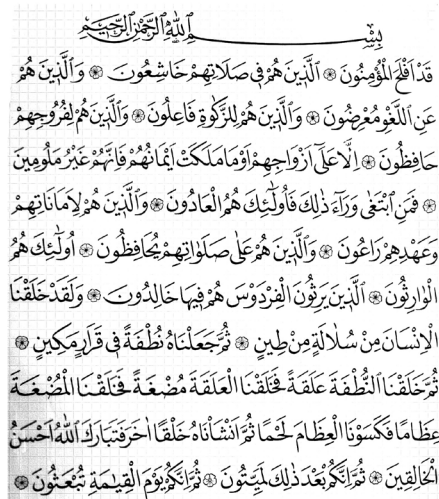 بِسْمِ اللّٰهِ الرَّحْمٰنِ الرَّحٖيمِ
قَدْ اَفْلَحَ الْمُؤْمِنُونَ ۞ اَلَّذٖينَ هُمْ فٖى صَلَاتِهِمْ خَاشِعُونَ ۞ وَالَّذٖينَ هُمْ
عَنِ اللَّغْوِ مُعْرِضُونَ ۞ وَالَّذٖينَ هُمْ لِلزَّكٰوةِ فَاعِلُونَ ۞ وَالَّذٖينَ هُمْ لِفُرُوجِهِمْ
حَافِظُونَ ۞ اِلَّا عَلٰٓى اَزْوَاجِهِمْ اَوْ مَا مَلَكَتْ اَيْمَانُهُمْ فَاِنَّهُمْ غَيْرُ مَلُومٖينَ
۞ فَمَنِ ابْتَغٰى وَرَٓاءَ ذٰلِكَ فَاُولٰٓئِكَ هُمُ الْعَادُونَ ۞ وَالَّذٖينَ هُمْ لِاَمَانَاتِهِمْ
وَعَهْدِهِمْ رَاعُونَ ۞ وَالَّذٖينَ هُمْ عَلٰى صَلَوَاتِهِمْ يُحَافِظُونَ ۞ اُولٰٓئِكَ هُمُ
الْوَارِثُونَ ۞ اَلَّذٖينَ يَرِثُونَ الْفِرْدَوْسَ هُمْ فٖيهَا خَالِدُونَ ۞ وَلَقَدْ خَلَقْنَا
الْاِنْسَانَ مِنْ سُلَالَةٍ مِنْ طٖينٍ ۞ ثُمَّ جَعَلْنَاهُ نُطْفَةً فٖى قَرَارٍ مَكٖينٍ ۞
ثُمَّ خَلَقْنَا النُّطْفَةَ عَلَقَةً فَخَلَقْنَا الْعَلَقَةَ مُضْغَةً فَخَلَقْنَا الْمُضْغَةَ
عِظَامًا فَكَسَوْنَا الْعِظَامَ لَحْمًا ثُمَّ اَنْشَاْنَاهُ خَلْقًا اٰخَرَ فَتَبَارَكَ اللّٰهُ اَحْسَنُ
الْخَالِقٖينَ ۞ ثُمَّ اِنَّكُمْ بَعْدَ ذٰلِكَ لَمَيِّتُونَ ۞ ثُمَّ اِنَّكُمْ يَوْمَ الْقِيٰمَةِ تُبْعَثُونَ ۞